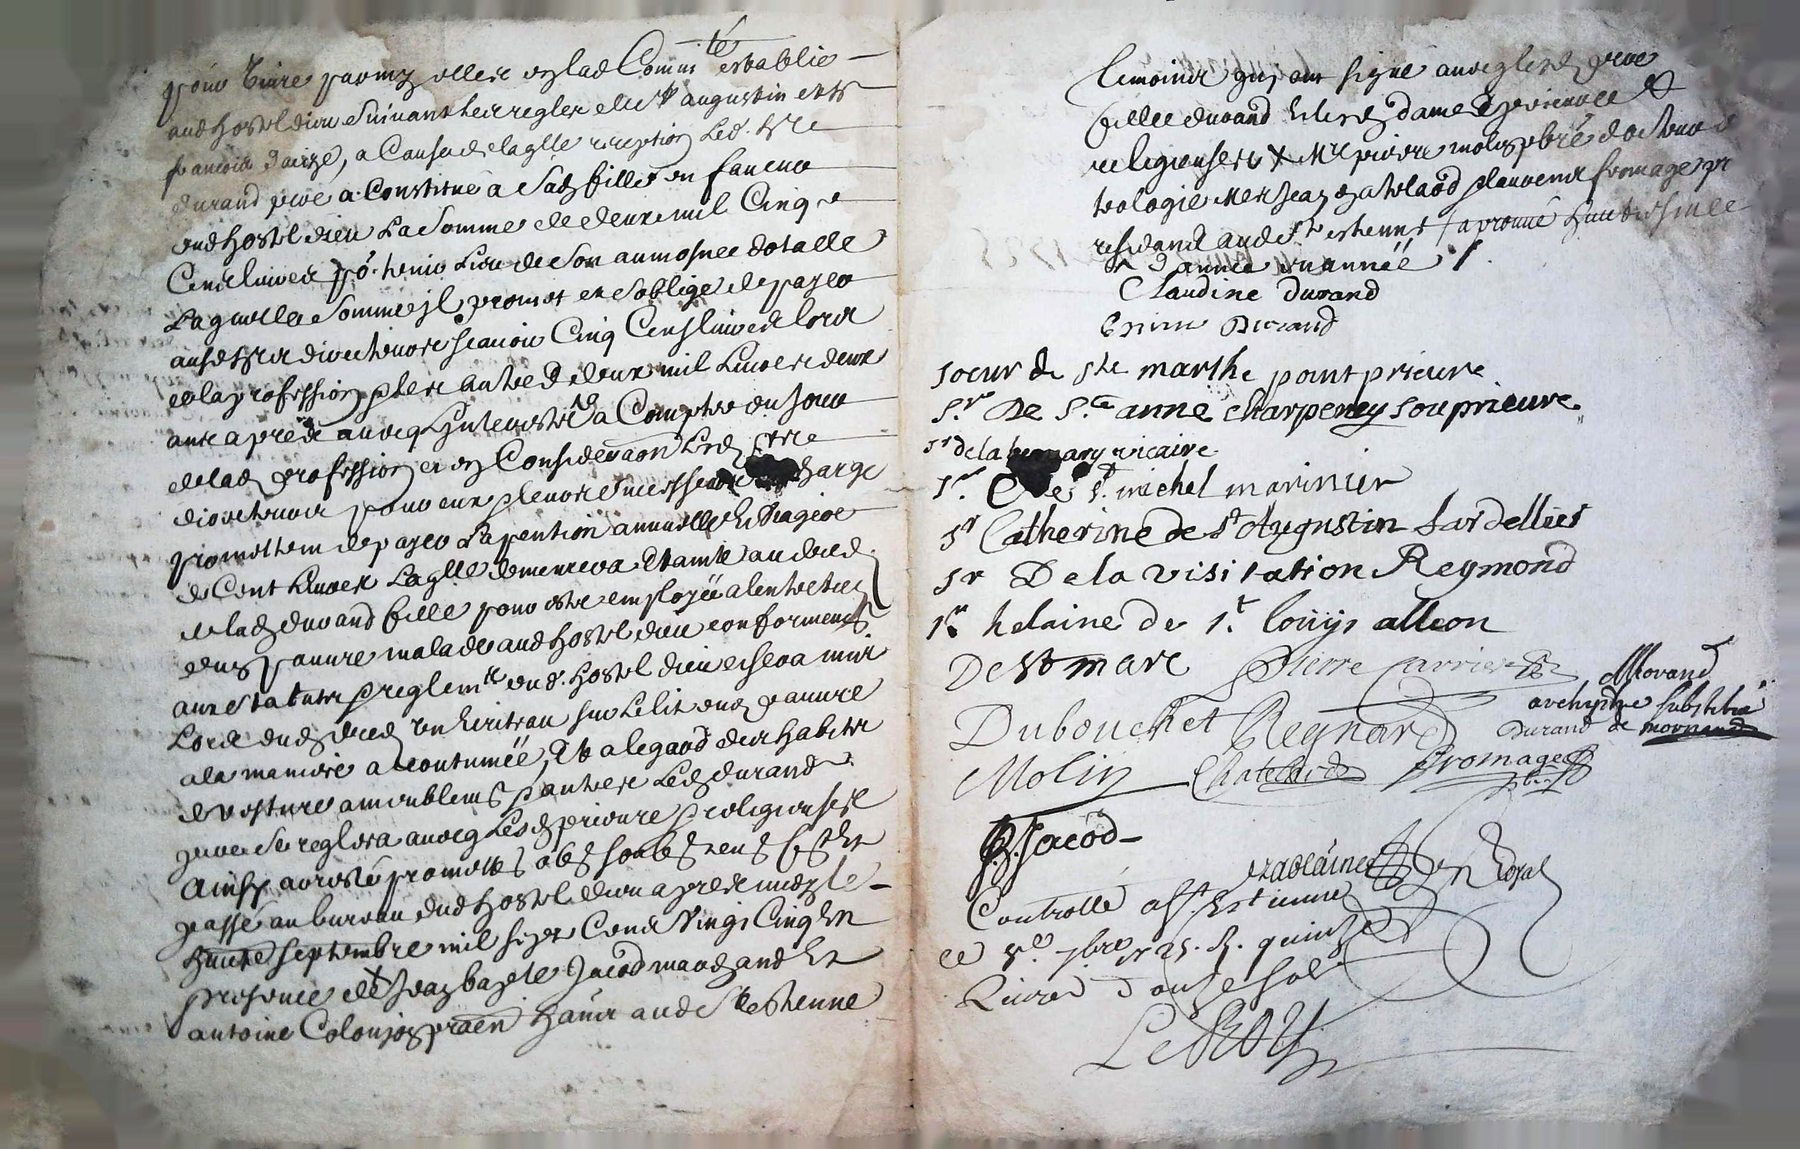 pour vivre parmy elles en lad Commte establie
aud hostel dieu suivant les regles de st augustin et st
francois a cause de laqlle reception Led. Sr
durand pere a Constitué a sad fille en faveur
dud hostel dieu La somme de deux mil Cinq
Cens livres po. tenir Lieu de son aumosne dotalle
Laquelle somme il promet et s'oblige de payer
ausd srs directeurs scavoir Cinq Cens livres lors
de la profession et les autres deux mil Livres deux
ans apres avec Linterest a Compter du jour
de lad profession et en Consideraon Lesd srs
directeurs pour eux et leurs successeurs charge
promettent de payer La pention annuelle et viagere
de Cent Livres Laqlle demeurera Estainte au deced
de lad durand fille pour estre employée a lentretien
des pauvres malades aud hostel dieu conformemt
aux statuts et reglemts dud. hostel dieu et sera mis
Lors dud deced un Ecriteau sur Le lit dud pauvre
a la maniere accoutumée, Et a legard des habits
de vesture ameublemt et autres Led durand
pere se reglera avec Lesd prieure et religieuses
Ainsy arresté promett obeg soubs renong fait Et
passé au bureau dud hostel dieu apres midy le
huitie septembre mil sept Cens Vingt Cinq En
presence de Jean baptte Jacod marchand Et
antoine Colonjon praen habis aud St Estienne
temoins qui ont signé avec lesd pere
fille durand lesd dames prieure &
religieuses & Mre pierre molin pbre docteur
teologie Mes Jean chatelard et laurens fromage pr
residants aud st estienne
d'année en année
Claudine durand
Durand
soeur de ste marthe point prieure
sr. De Ste anne Charpeney souprieure
sr de la vicaire
sr. st. michel marinier
sr Catherine de st Augustin Sardellier
sr De la visitation Reymond
sr helaine de st. louys alleon
De St marc Pierre Carrier
Morand
archiptre substitué
Dubouchet Reynard
Durand de mornand
Molin Chatelard fromage
Jacod
Controllé a St Estienne
ce 8e 7bre 1725. R. quinze
Livres douze sols
LeRoy